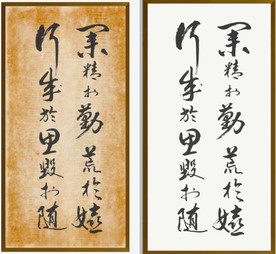 業精於勤荒於嬉
行成於思毀於随
業精於勤荒於嬉
行成於思毀於随